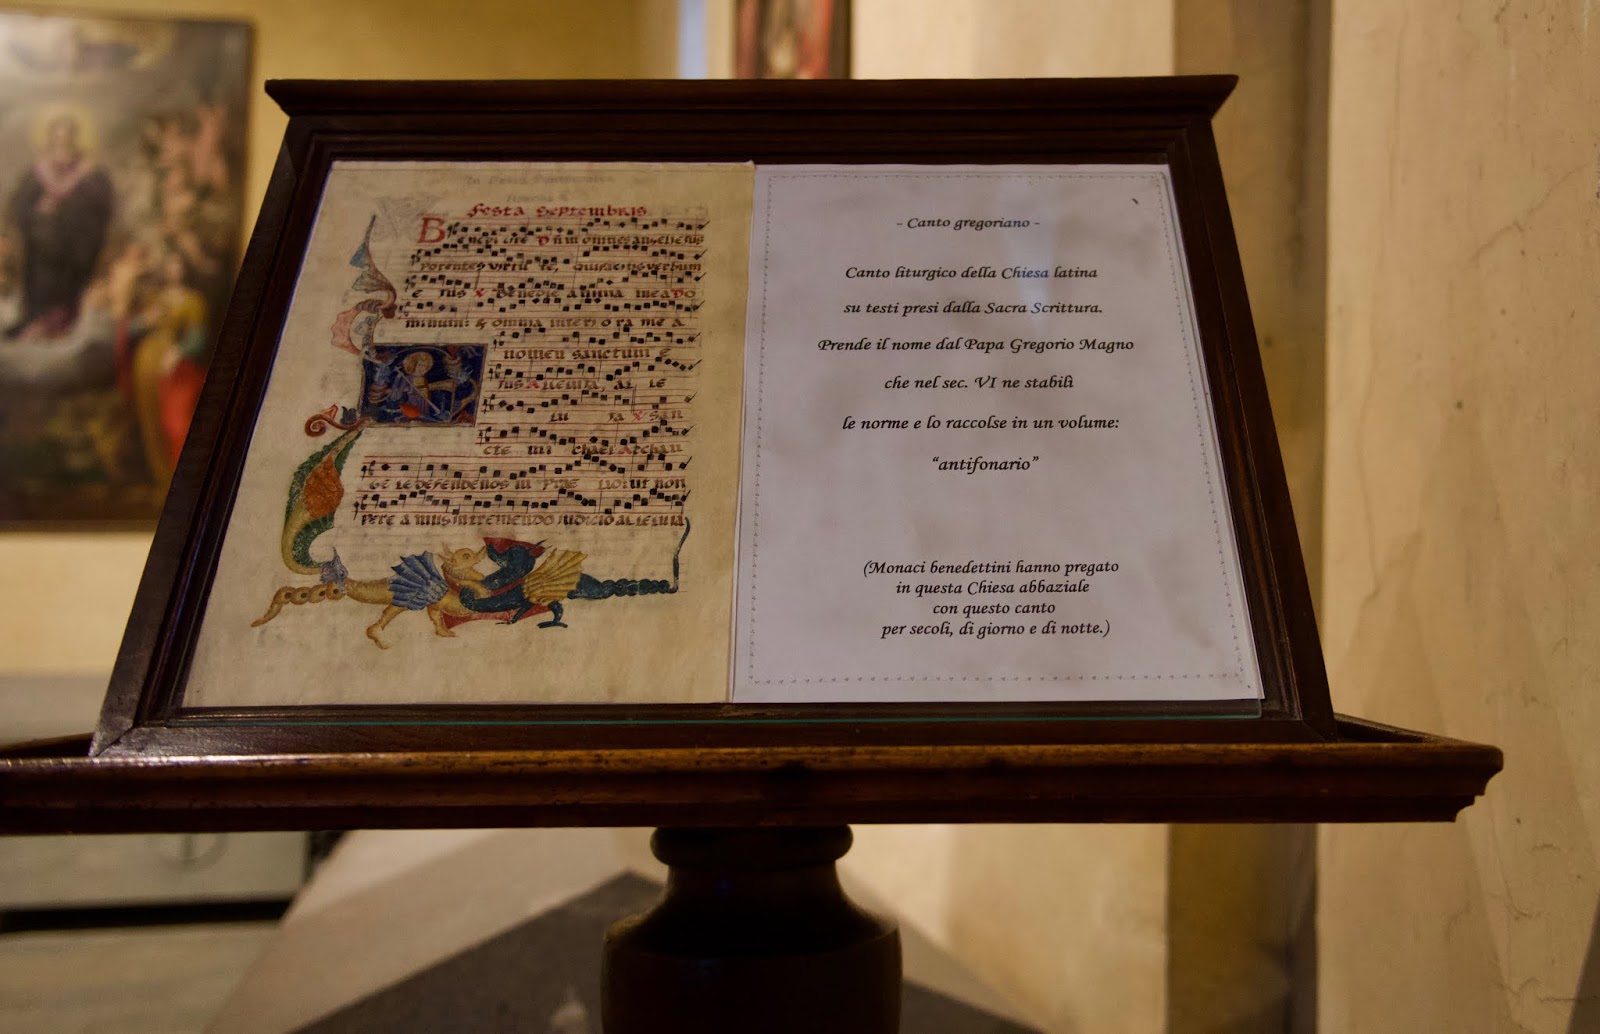 Festa septembris
Benedicite Dnm omnes angeli eius
potentes virtute, qui facitis verbum
eius V Benedic anima mea Do
mino: & omnia interiora mea
nomen sanctum e
ius Alleluia, al le
lu ia V San
cte mi chael Archan
ge le defende nos in prae lio ut non
pere a mus in tremendo iudicio alleluia
- Canto gregoriano -
Canto liturgico della Chiesa latina
su testi presi dalla Sacra Scrittura.
Prende il nome dal Papa Gregorio Magno
che nel sec. VI ne stabilì
le norme e lo raccolse in un volume:
“antifonario”
(Monaci benedettini hanno pregato
in questa Chiesa abbaziale
con questo canto
per secoli, di giorno e di notte.)